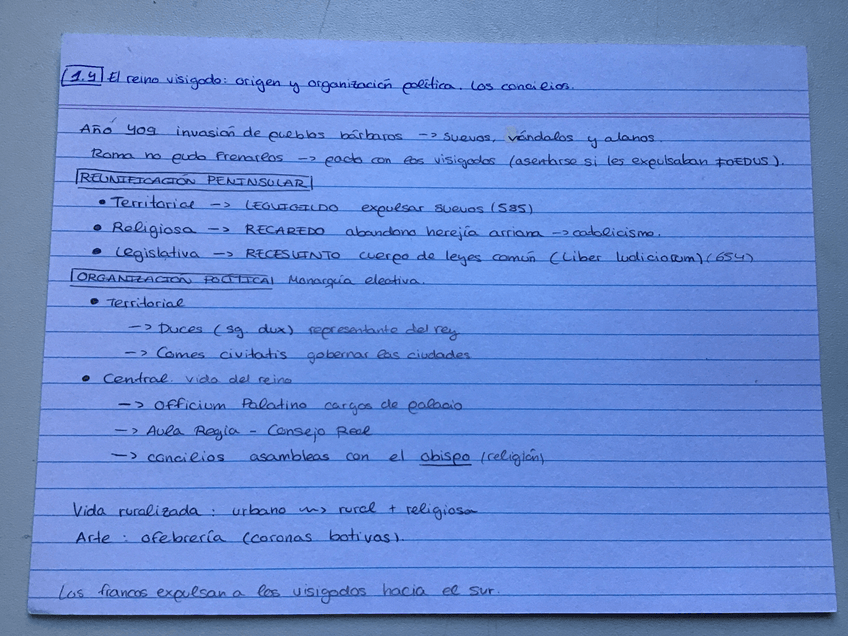 1.4 El reino visigodo: origen y organización política. Los concilios.
Año 409 invasión de pueblos bárbaros -> suevos, vándalos y alanos.
Roma no pudo frenarlos -> pacto con los visigodos (asentarse si les expulsaban FOEDUS).
REUNIFICACIÓN PENINSULAR
• Territorial -> LEOVIGILDO expulsar suevos (585)
• Religiosa -> RECAREDO abandono herejía arriana -> catolicismo.
• Legislativa -> RECESVINTO cuerpo de leyes común (Liber Iudiciorum) (654)
ORGANIZACIÓN POLÍTICA Monarquía electiva.
• Territorial
-> Duces (sg. dux) representante del rey
-> Comes civitatis gobernar las ciudades
• Central. vida del reino
-> Officium Palatino cargos de palacio
-> Aula Regia - Consejo Real
-> concilios asambleas con el obispo (religión)
Vida ruralizada: urbano ~> rural + religiosa
Arte: ofebrería (coronas botivas).
Los francos expulsan a los visigodos hacia el sur.